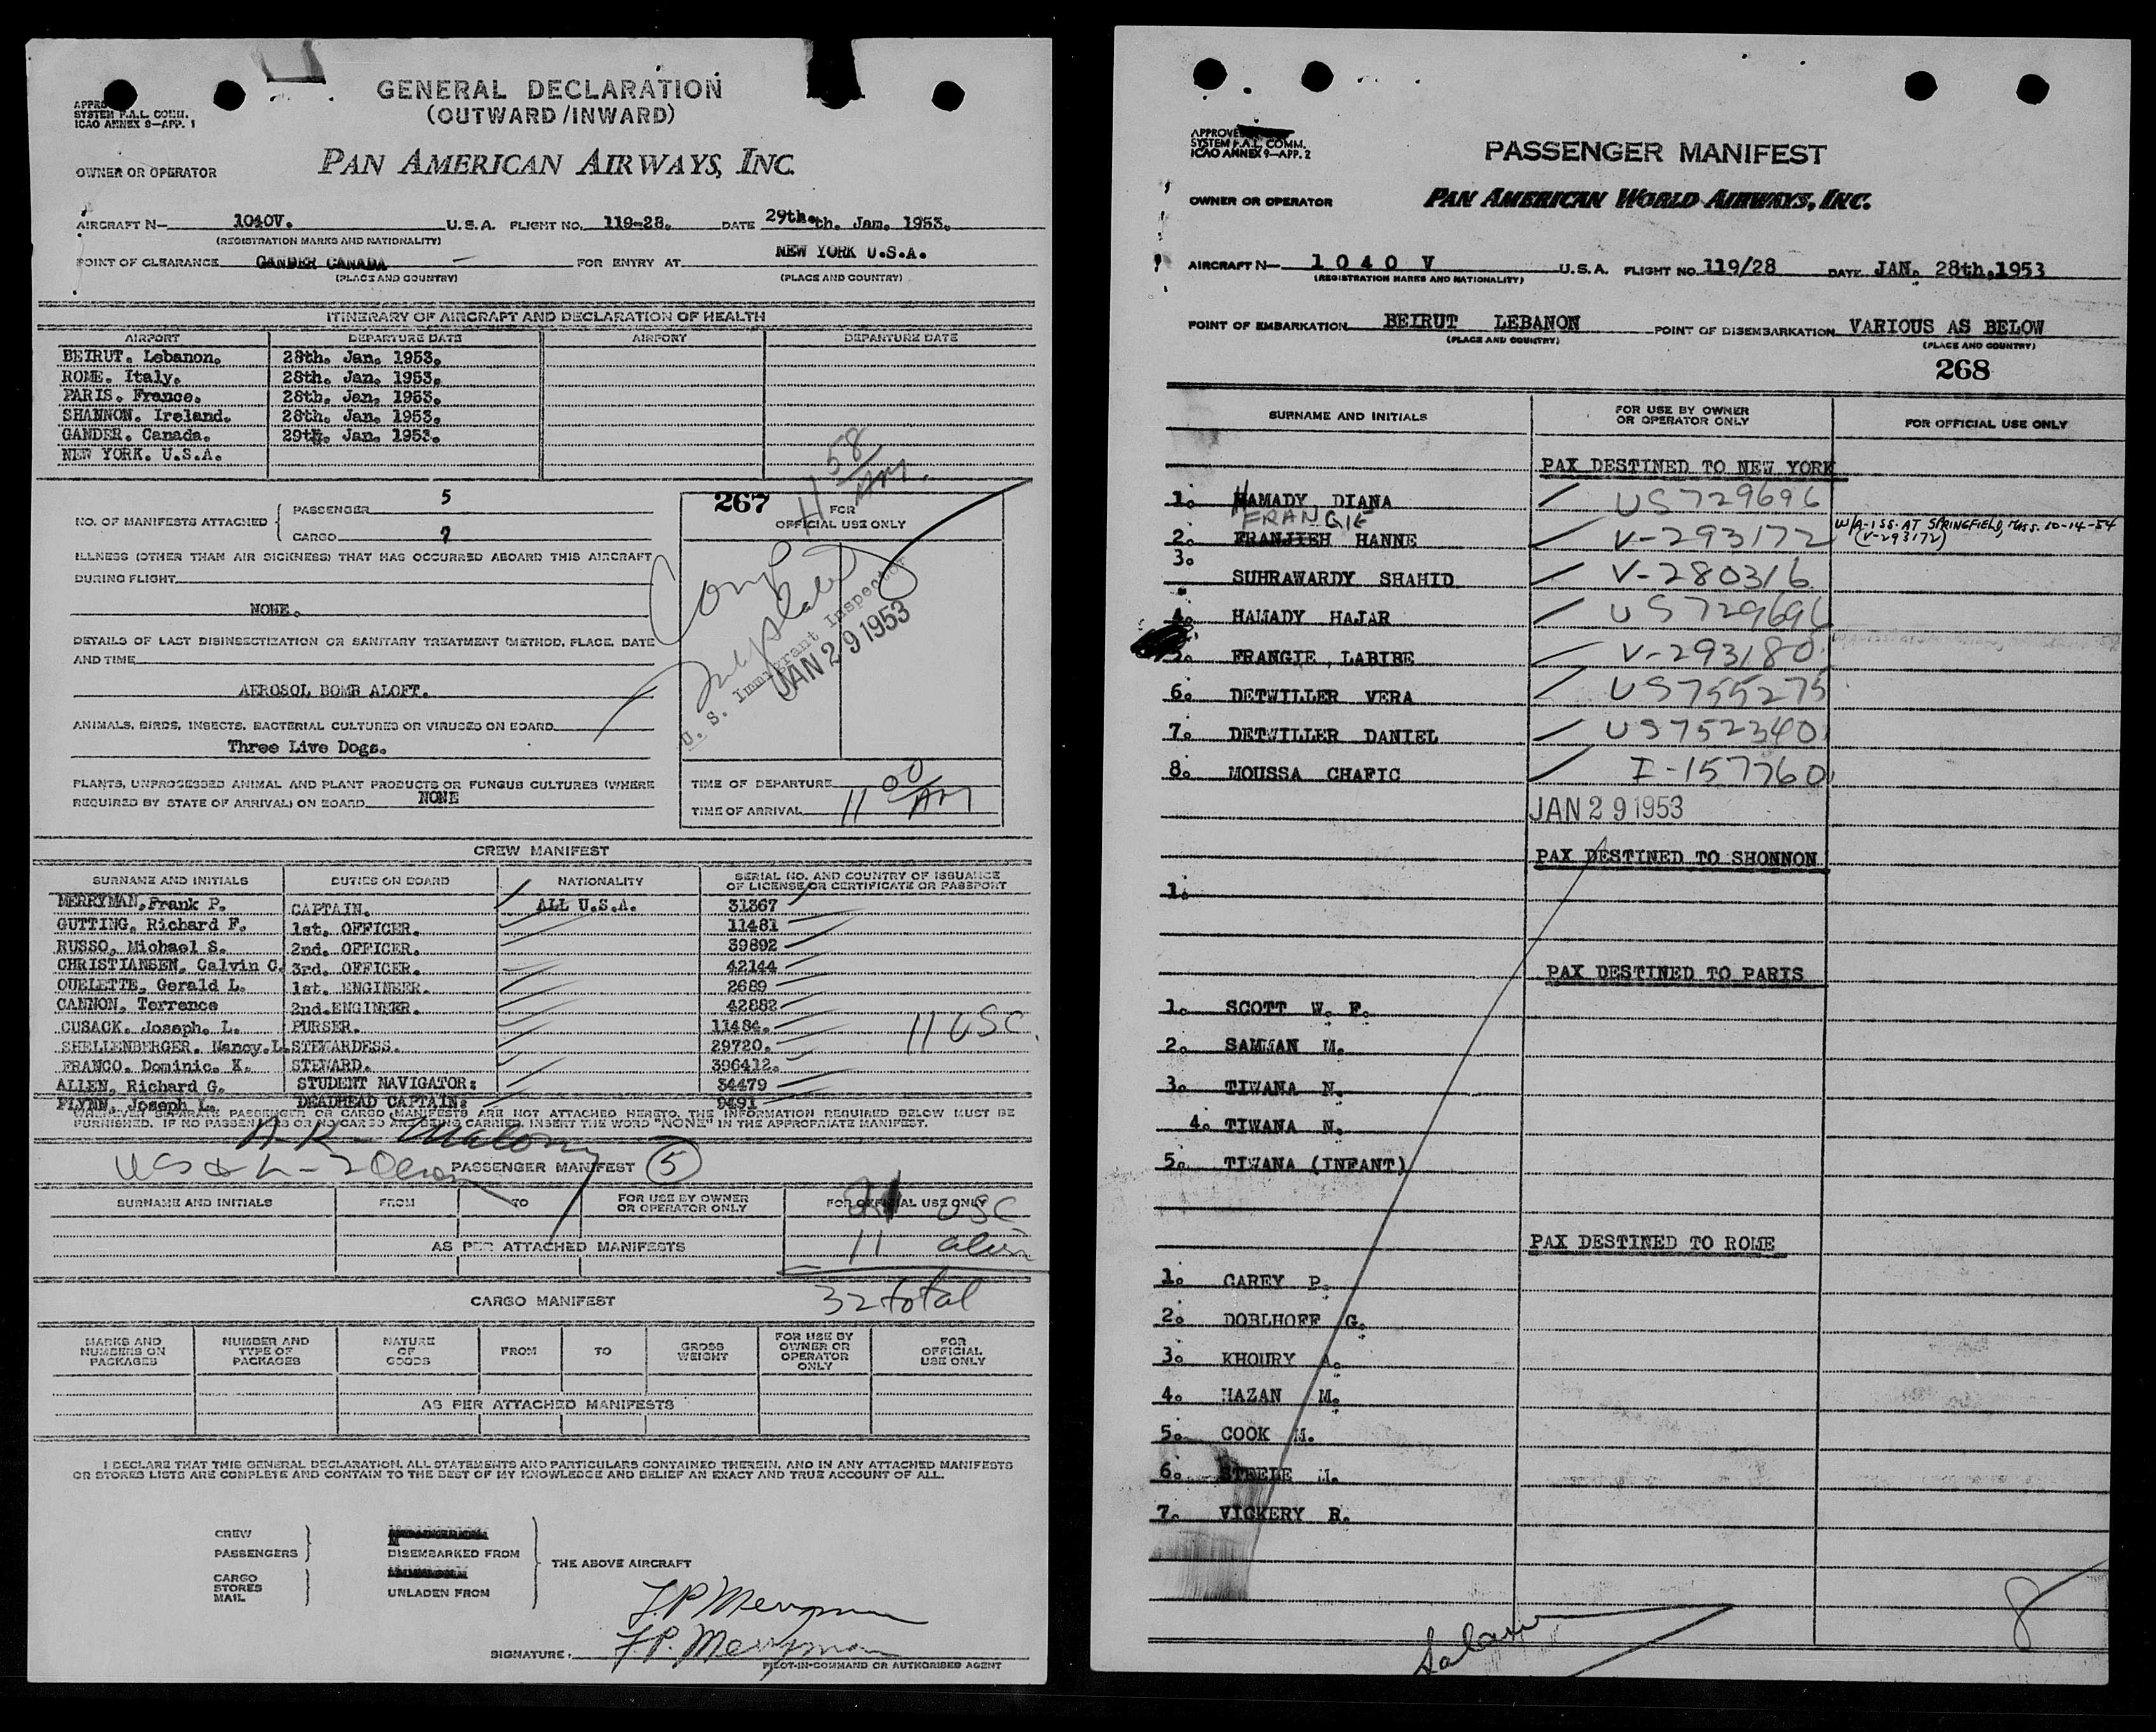 APPRO
SYSTEM F.A.L. COMM.
ICAO ANNEX 9—APP. 1
GENERAL DECLARATION
(OUTWARD/INWARD)
OWNER OR OPERATOR
PAN AMERICAN AIRWAYS, INC.
AIRCRAFT N— 1040V. U.S.A. FLIGHT NO. 119-28. DATE 29th. th. Jan. 1953.
(REGISTRATION MARKS AND NATIONALITY)
POINT OF CLEARANCE GANDER CANADA FOR ENTRY AT NEW YORK U.S.A.
(PLACE AND COUNTRY) (PLACE AND COUNTRY)
ITINERARY OF AIRCRAFT AND DECLARATION OF HEALTH
AIRPORT DEPARTURE DATE AIRPORT DEPARTURE DATE
BEIRUT. Lebanon. 28th. Jan. 1953.
ROME. Italy. 28th. Jan. 1953.
PARIS. France. 28th. Jan. 1953.
SHANNON. Ireland. 28th. Jan. 1953.
GANDER. Canada. 29th. Jan. 1953.
NEW YORK. U.S.A.
11 58 AM.
NO. OF MANIFESTS ATTACHED
PASSENGER 5
CARGO 7
267
FOR
OFFICIAL USE ONLY
ILLNESS (OTHER THAN AIR SICKNESS) THAT HAS OCCURRED ABOARD THIS AIRCRAFT
DURING FLIGHT
NONE.
DETAILS OF LAST DISINSECTIZATION OR SANITARY TREATMENT (METHOD, PLACE, DATE
AND TIME
AEROSOL BOMB ALOFT.
ANIMALS, BIRDS, INSECTS, BACTERIAL CULTURES OR VIRUSES ON BOARD
Three Live Dogs.
PLANTS, UNPROCESSED ANIMAL AND PLANT PRODUCTS OR FUNGUS CULTURES (WHERE
REQUIRED BY STATE OF ARRIVAL) ON BOARD NONE
U. S. Immigrant Inspector
JAN 29 1953
TIME OF DEPARTURE
TIME OF ARRIVAL 11 00 AM
CREW MANIFEST
SURNAME AND INITIALS DUTIES ON BOARD NATIONALITY SERIAL NO. AND COUNTRY OF ISSUANCE
OF LICENSE OR CERTIFICATE OR PASSPORT
MERRYMAN, Frank P. CAPTAIN. ALL U.S.A. 31367
GUTTING, Richard F. 1st. OFFICER. 11481
RUSSO, Michael S. 2nd. OFFICER. 39892
CHRISTIANSEN, Calvin C. 3rd. OFFICER. 42144
OUELETTE, Gerald L. 1st. ENGINEER. 2689
CANNON, Terrence 2nd. ENGINEER. 42882
CUSACK. Joseph. L. PURSER. 11484.
SHELLENBERGER. Nancy. L. STEWARDESS. 29720.
FRANCO. Dominic. X. STEWARD. 396412.
ALLEN, Richard G. STUDENT NAVIGATOR: 34479
FLYNN, Joseph L. DEADHEAD CAPTAIN: 9491
11 USC
WHENEVER SEPARATE PASSENGER OR CARGO MANIFESTS ARE NOT ATTACHED HERETO, THE INFORMATION REQUIRED BELOW MUST BE
FURNISHED. IF NO PASSENGERS OR NO CARGO ARE BEING CARRIED, INSERT THE WORD "NONE" IN THE APPROPRIATE MANIFEST.
PASSENGER MANIFEST 5
SURNAME AND INITIALS FROM TO FOR USE BY OWNER
OR OPERATOR ONLY FOR OFFICIAL USE ONLY
21 USC
AS PER ATTACHED MANIFESTS
11 alien
32 total
CARGO MANIFEST
MARKS AND
NUMBERS ON
PACKAGES
NUMBER AND
TYPE OF
PACKAGES
NATURE
OF
GOODS
FROM
TO
GROSS
WEIGHT
FOR USE BY
OWNER OR
OPERATOR
ONLY
FOR
OFFICIAL
USE ONLY
AS PER ATTACHED MANIFESTS
I DECLARE THAT THIS GENERAL DECLARATION, ALL STATEMENTS AND PARTICULARS CONTAINED THEREIN, AND IN ANY ATTACHED MANIFESTS
OR STORES LISTS ARE COMPLETE AND CONTAIN TO THE BEST OF MY KNOWLEDGE AND BELIEF AN EXACT AND TRUE ACCOUNT OF ALL.
CREW
PASSENGERS
DISEMBARKED FROM
THE ABOVE AIRCRAFT
CARGO
STORES
MAIL
UNLADEN FROM
F.P. Merryman
SIGNATURE. F.P. Merryman
PILOT-IN-COMMAND OR AUTHORISED AGENT
APPROVE
SYSTEM F.A.L. COMM.
ICAO ANNEX 9—APP. 2
PASSENGER MANIFEST
OWNER OR OPERATOR
PAN AMERICAN WORLD AIRWAYS, INC.
AIRCRAFT N— 1 0 4 0 V U.S.A. FLIGHT NO. 119/28 DATE JAN. 28th,1953
(REGISTRATION MARKS AND NATIONALITY)
POINT OF EMBARKATION BEIRUT LEBANON POINT OF DISEMBARKATION VARIOUS AS BELOW
(PLACE AND COUNTRY) (PLACE AND COUNTRY)
268
SURNAME AND INITIALS FOR USE BY OWNER
OR OPERATOR ONLY FOR OFFICIAL USE ONLY
PAX DESTINED TO NEW YORK
1. HAMADY DIANA US729696
FRANGIE
2. FRANJIEH HANNE V-293172 W/A-155. AT SPRINGFIELD, MASS. 10-14-54
(V-293172)
3. SUHRAWARDY SHAHID V-280316
4. HAMADY HAJAR US729696
5. FRANGIE, LABIBE V-293180
6. DETWILLER VERA US755275
7. DETWILLER DANIEL US752340
8. MOUSSA CHAFIC I-157760
JAN 29 1953
PAX DESTINED TO SHONNON
1.
PAX DESTINED TO PARIS
1. SCOTT W. F.
2. SAMMAN M.
3. TIWANA N.
4. TIWANA N.
5. TIWANA (INFANT)
PAX DESTINED TO ROME
1. CAREY P.
2. DOBLHOFF G.
3. KHOURY A.
4. HAZAN M.
5. COOK M.
6. STEELE M.
7. VICKERY R.
8